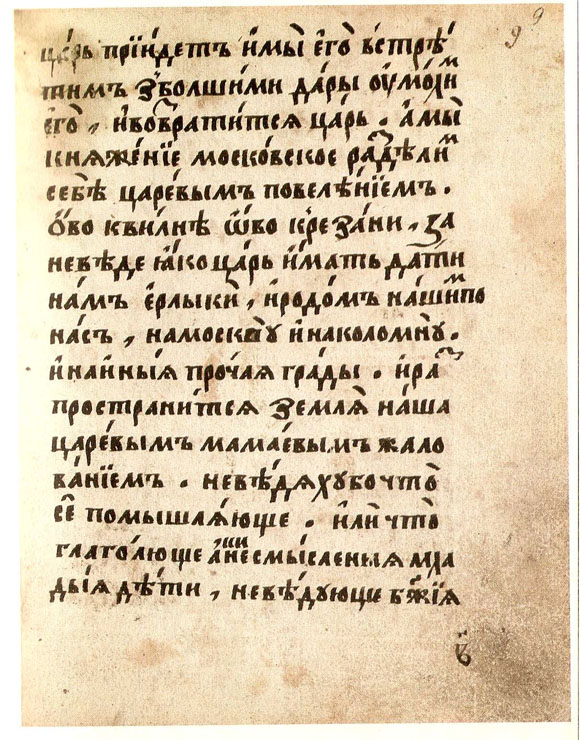 9
9
цр҃ь прїи́детъ и҆мы̀ е҆го̀ встрѣ́
тимъ з̾болшими да́ры ѹ҆мо́лиⷨ
е҆го̀, и҆во́ꙁвратитсѧ ца́рь. а҆мы̀
кнѧже́нїе моско́вское раꙁдѣли́ⷨ
себѣ̀ царе́вымъ повелѣ́нїемъ.
ѻ҆́во кви́лнѣ ѿво крезани, ꙁа
невѣ́де ꙗ҆́ко ца́рь и҆́мать да́ти
на́мъ е҆рлыкѝ, и҆родо́мъ на́шиⷨпо
на́съ, намоскву̀ и҆наколо́мну.
и҆наи́ныѧ про́чаѧ гра́ды. и҆раⷥ
простра́нитсѧ ꙁемлѧ̀ на́ша
царе́вымъ мама́евымъ жало
ва́нїемъ. невѣ́дѧхубо что̀
сѐ помышлѧ́юще. и҆лѝ что̀
глаго́люще а҆ниⷩесмы́сленыѧ мла
ды́ѧ дѣ́ти, невѣ́дующе бж҃їѧ
в҃